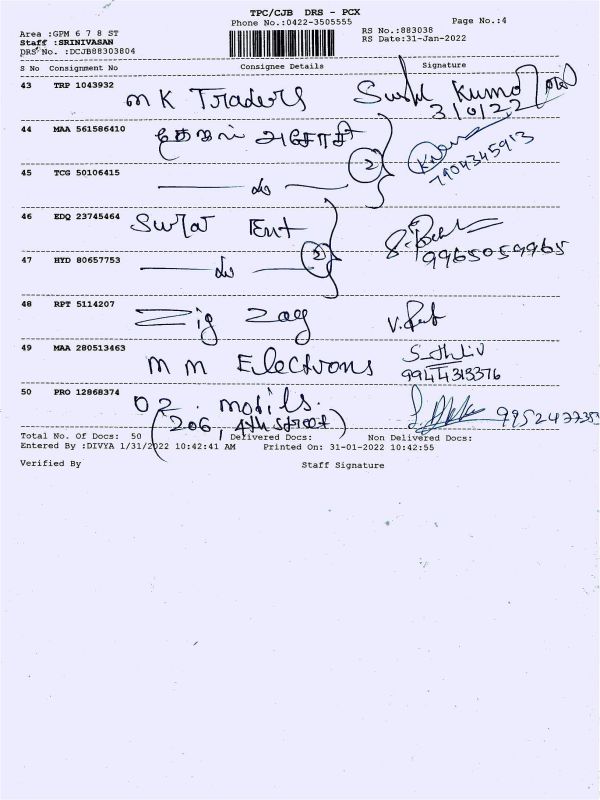 TPC/CJB DRS - PCX
Phone No.:0422-3505555
Page No.:4
Area :GPM 6 7 8 ST
RS No.:883038
Staff :SRINIVASAN
RS Date:31-Jan-2022
DRS No. :DCJB88303804
S No Consignment No Consignee Details Signature
43 TRP 1043932 M K Traders
44 MAA 561586410
2
7904345913
45 TCG 50106415
46 EDQ 23745464 Ent
9965059965
47 HYD 80657753
48 RPT 5114207 Zig Zag
49 MAA 280513463 M M Electrons
9944313376
50 PRO 12868374 02.
(206, 4th street)
Total No. Of Docs: 50 Delivered Docs: Non Delivered Docs:
Entered By :DIVYA 1/31/2022 10:42:41 AM Printed On: 31-01-2022 10:42:55
Verified By Staff Signature